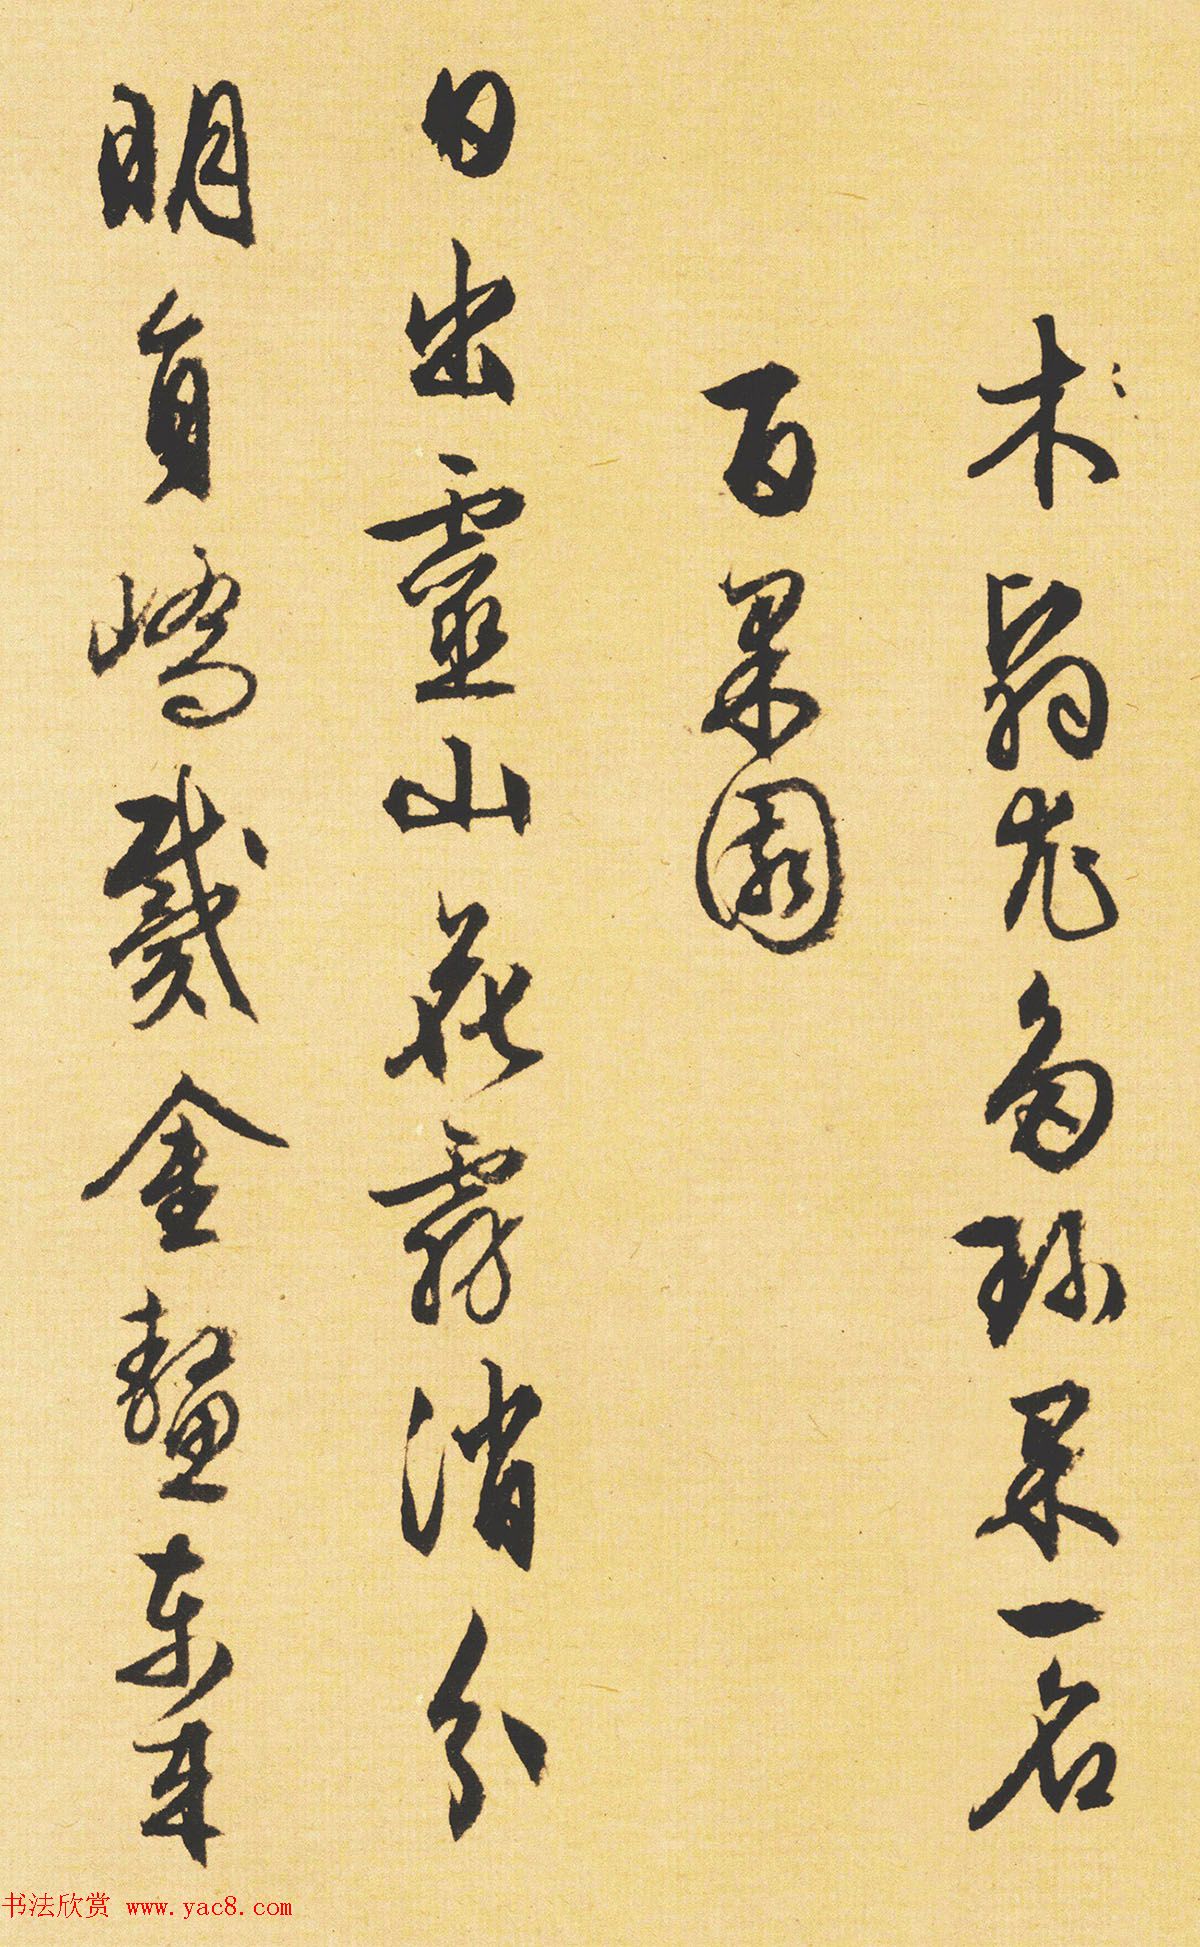 木蓊尤多珍果一名
百果園
日出靈山花霧消分
明員嶠戴金鼇東来
书法欣赏 www.yac8.com